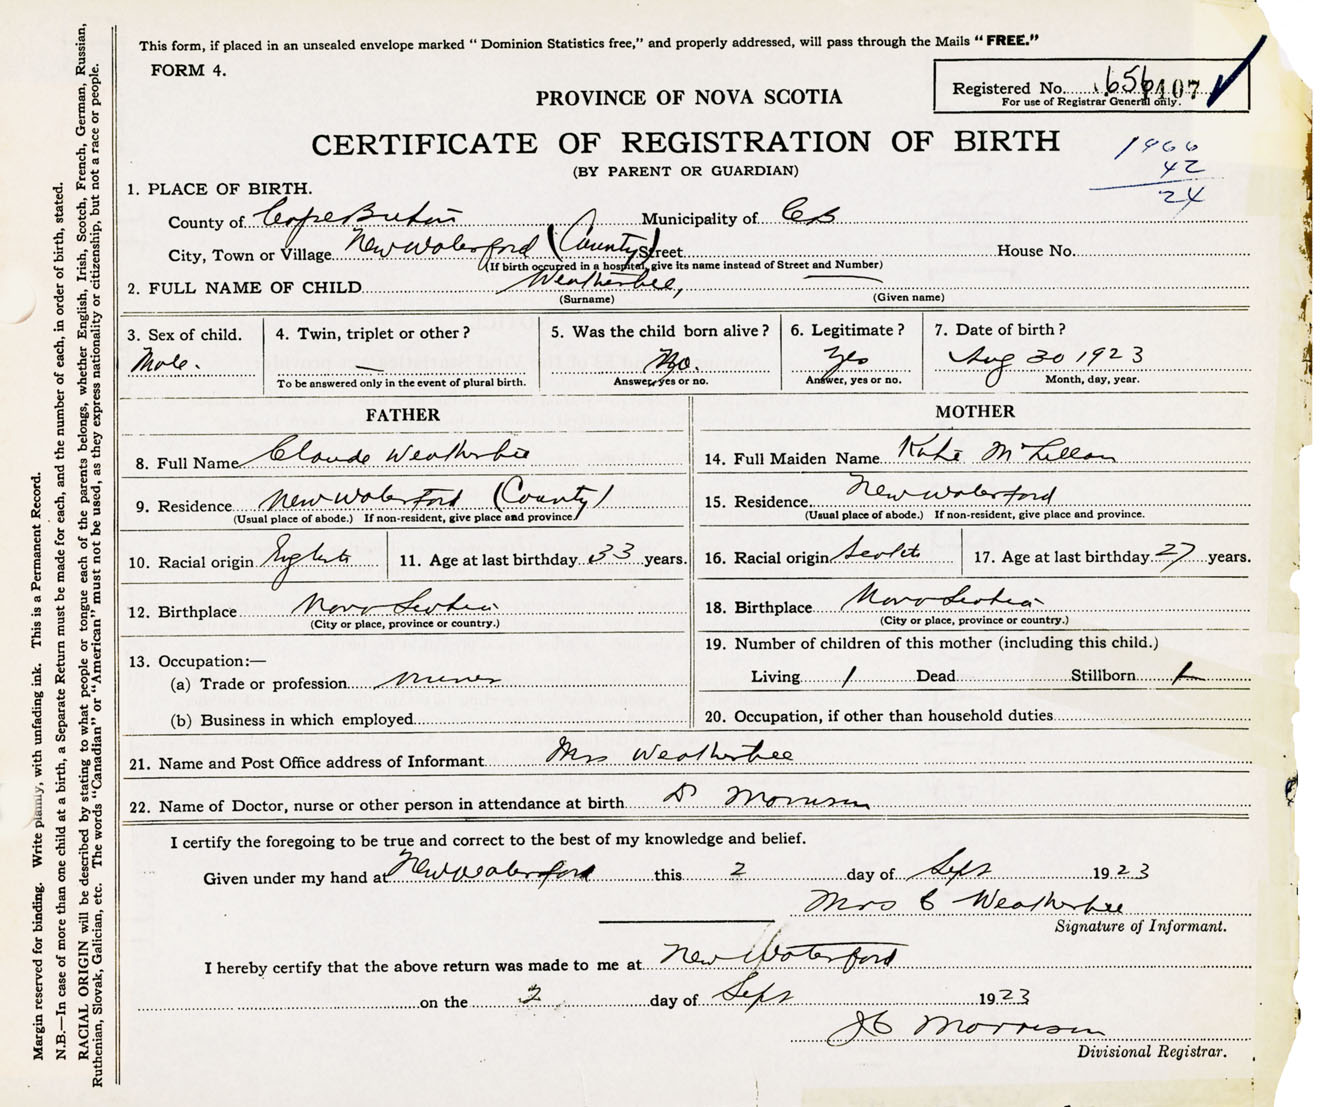 This form, if placed in an unsealed envelope marked “ Dominion Statistics free,” and properly addressed, will pass through the Mails “ FREE.”
FORM 4.
Registered No. 656 107
For use of Registrar General only.
PROVINCE OF NOVA SCOTIA
CERTIFICATE OF REGISTRATION OF BIRTH
(BY PARENT OR GUARDIAN)
1966
42
24
1. PLACE OF BIRTH.
County of Cape Breton Municipality of CB
City, Town or Village New Waterford (County) Street House No.
(If birth occurred in a hospital, give its name instead of Street and Number)
2. FULL NAME OF CHILD Weatherbee, —
(Surname) (Given name)
3. Sex of child. 4. Twin, triplet or other ? 5. Was the child born alive ? 6. Legitimate ? 7. Date of birth ?
Male. — No. Yes Aug 30 1923
To be answered only in the event of plural birth. Answer, yes or no. Answer, yes or no. Month, day, year.
FATHER MOTHER
8. Full Name Claude Weatherbie 14. Full Maiden Name Katie McLellan
9. Residence New Waterford (County) 15. Residence New Waterford
(Usual place of abode.) If non-resident, give place and province. (Usual place of abode.) If non-resident, give place and province.
10. Racial origin English 11. Age at last birthday 33 years. 16. Racial origin Scotch 17. Age at last birthday 27 years.
12. Birthplace Nova Scotia 18. Birthplace Nova Scotia
(City or place, province or country.) (City or place, province or country.)
19. Number of children of this mother (including this child.)
13. Occupation:—
(a) Trade or profession miner Living 1 Dead Stillborn 1
(b) Business in which employed 20. Occupation, if other than household duties
21. Name and Post Office address of Informant Mrs Weatherbee
22. Name of Doctor, nurse or other person in attendance at birth Dr Morrison
I certify the foregoing to be true and correct to the best of my knowledge and belief.
Given under my hand at New Waterford this 2 day of Sept 1923
Mrs C Weatherbee
Signature of Informant.
I hereby certify that the above return was made to me at New Waterford
on the 2 day of Sept 1923
JC Morrison
Divisional Registrar.
Margin reserved for binding. Write plainly, with unfading ink. This is a Permanent Record.
N.B.—In case of more than one child at a birth, a Separate Return must be made for each, and the number of each, in order of birth, stated.
RACIAL ORIGIN will be described by stating to what people or tongue each of the parents belongs, whether English, Irish, Scotch, French, German, Russian,
Ruthenian, Slovak, Galician, etc. The words “Canadian” or “American” must not be used, as they express nationality or citizenship, but not a race or people.